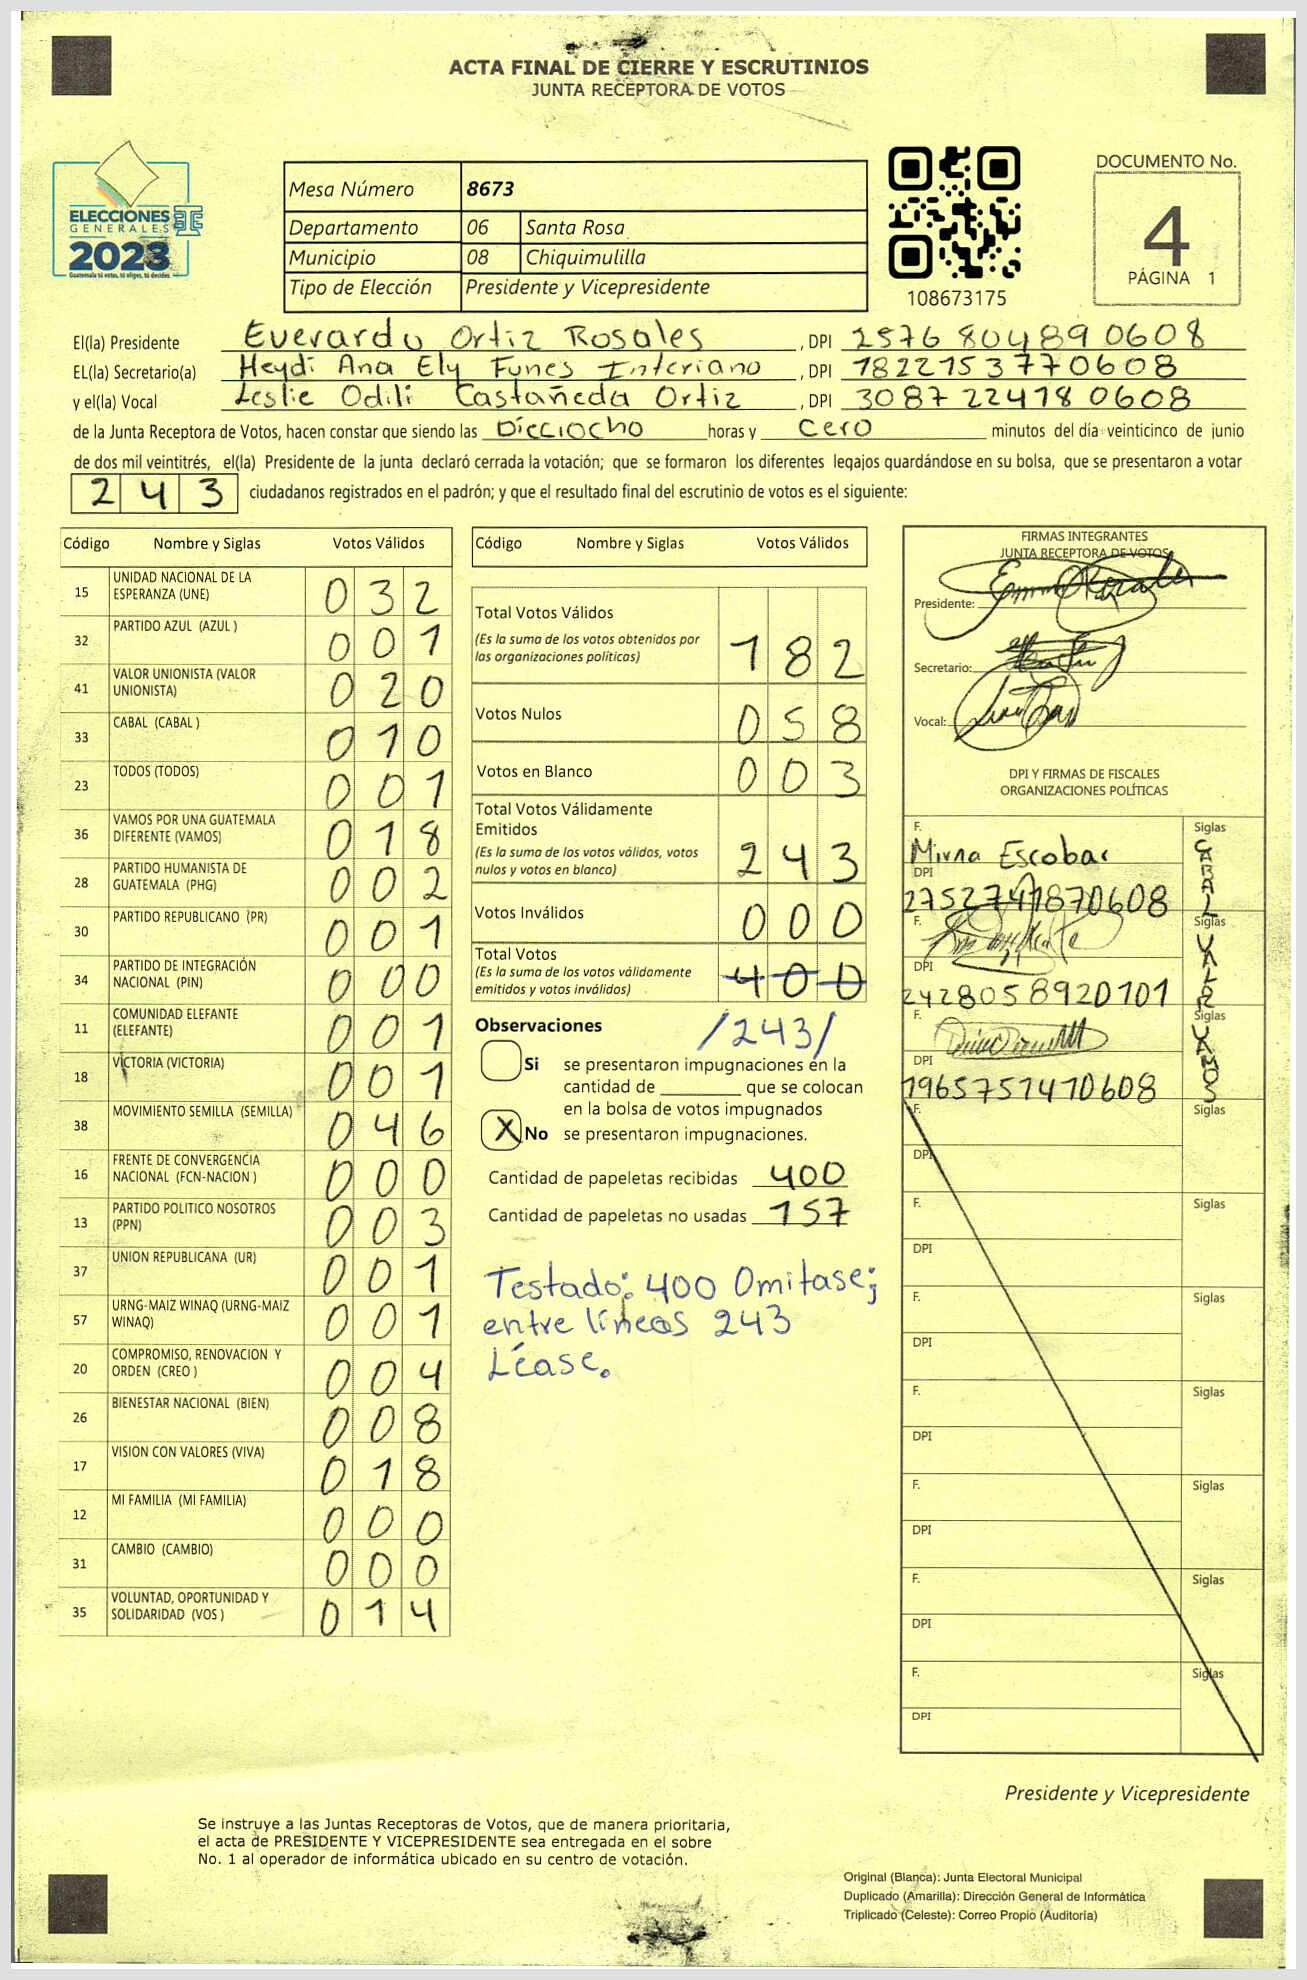 ACTA FINAL DE CIERRE Y ESCRUTINIOS
JUNTA RECEPTORA DE VOTOS
ELECCIONES
GENERALES
2023
Guatemala tú votas, tú eliges, tú decides
Mesa Número 8673
Departamento 06 Santa Rosa
Municipio 08 Chiquimulilla
Tipo de Elección Presidente y Vicepresidente
108673175
DOCUMENTO No.
4
PÁGINA 1
El(la) Presidente Everardo Ortiz Rosales , DPI 2576 80489 0608
EL(la) Secretario(a) Heydi Ana Ely Funes Interiano , DPI 1822153770608
y el(la) Vocal Leslie Odili Castañeda Ortiz , DPI 3087 22418 0608
de la Junta Receptora de Votos, hacen constar que siendo las Dieciocho horas y cero minutos del día veinticinco de junio
de dos mil veintitrés, el(la) Presidente de la junta declaró cerrada la votación; que se formaron los diferentes legajos guardándose en su bolsa, que se presentaron a votar
243 ciudadanos registrados en el padrón; y que el resultado final del escrutinio de votos es el siguiente:
Código Nombre y Siglas Votos Válidos
15 UNIDAD NACIONAL DE LA ESPERANZA (UNE) 032
32 PARTIDO AZUL (AZUL ) 001
41 VALOR UNIONISTA (VALOR UNIONISTA) 020
33 CABAL (CABAL ) 010
23 TODOS (TODOS) 001
36 VAMOS POR UNA GUATEMALA DIFERENTE (VAMOS) 018
28 PARTIDO HUMANISTA DE GUATEMALA (PHG) 002
30 PARTIDO REPUBLICANO (PR) 001
34 PARTIDO DE INTEGRACIÓN NACIONAL (PIN) 000
11 COMUNIDAD ELEFANTE (ELEFANTE) 001
18 VICTORIA (VICTORIA) 001
38 MOVIMIENTO SEMILLA (SEMILLA) 046
16 FRENTE DE CONVERGENCIA NACIONAL (FCN-NACION ) 000
13 PARTIDO POLITICO NOSOTROS (PPN) 003
37 UNION REPUBLICANA (UR) 001
57 URNG-MAIZ WINAQ (URNG-MAIZ WINAQ) 001
20 COMPROMISO, RENOVACION Y ORDEN (CREO ) 004
26 BIENESTAR NACIONAL (BIEN) 008
17 VISION CON VALORES (VIVA) 018
12 MI FAMILIA (MI FAMILIA) 000
31 CAMBIO (CAMBIO) 000
35 VOLUNTAD, OPORTUNIDAD Y SOLIDARIDAD (VOS ) 014
Código Nombre y Siglas Votos Válidos
Total Votos Válidos 182
(Es la suma de los votos obtenidos por
las organizaciones políticas)
Votos Nulos 058
Votos en Blanco 003
Total Votos Válidamente
Emitidos 243
(Es la suma de los votos válidos, votos
nulos y votos en blanco)
Votos Inválidos 000
Total Votos 400
(Es la suma de los votos válidamente
emitidos y votos inválidos)
/243/
Observaciones
Si se presentaron impugnaciones en la
cantidad de ________ que se colocan
en la bolsa de votos impugnados
X No se presentaron impugnaciones.
Cantidad de papeletas recibidas 400
Cantidad de papeletas no usadas 157
Testado: 400 Omitase;
entre líneas 243
Léase.
FIRMAS INTEGRANTES
JUNTA RECEPTORA DE VOTOS
Presidente:
Secretario:
Vocal:
DPI Y FIRMAS DE FISCALES
ORGANIZACIONES POLÍTICAS
F. Mirna Escobar Siglas CABAL
DPI 2752741870608
F. Siglas VALOR
DPI 2428058920101
F. Siglas VAMOS
DPI 1965751410608
F. Siglas
DPI
F. Siglas
DPI
F. Siglas
DPI
F. Siglas
DPI
F. Siglas
DPI
F. Siglas
DPI
F. Siglas
DPI
Presidente y Vicepresidente
Se instruye a las Juntas Receptoras de Votos, que de manera prioritaria,
el acta de PRESIDENTE Y VICEPRESIDENTE sea entregada en el sobre
No. 1 al operador de informática ubicado en su centro de votación.
Original (Blanca): Junta Electoral Municipal
Duplicado (Amarilla): Dirección General de Informática
Triplicado (Celeste): Correo Propio (Auditoría)